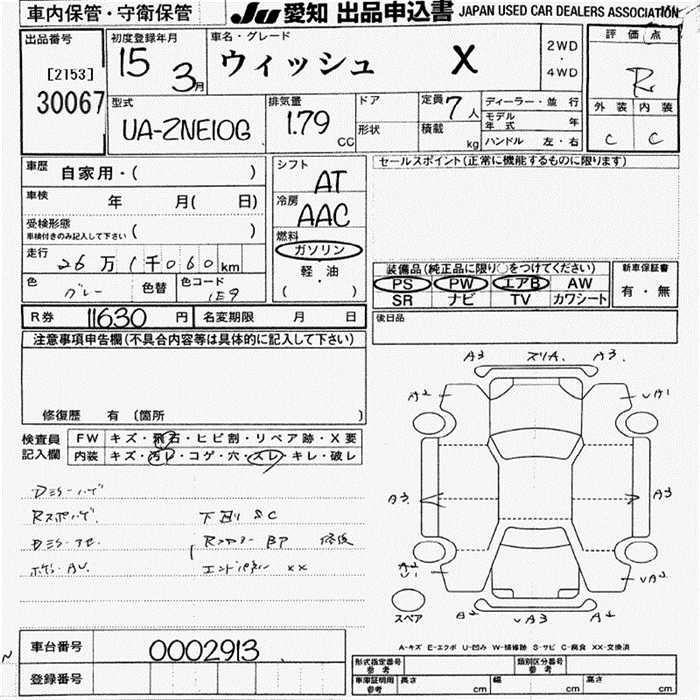 車内保管・守衛保管
JU 愛知 出品申込書 JAPAN USED CAR DEALERS ASSOCIATION
出品番号
[2153]
30067
初度登録年月
15 3月
車名・グレード
ウィッシュ X
2WD
・
4WD
評価点
R
外装 内装
C C
型式
UA-ZNE10G
排気量
1.79 CC
ドア
形状
定員 7人
積載 kg
ディーラー・並行
モデル年式 年
ハンドル 左・右
車歴 自家用・( )
車検 年 月( 日)
受検形態
車検付きのみ記入して下さい ( )
走行 26万1千060km
色 グレー 色替
色コード 1E9
シフト
AT
冷房
AAC
燃料
ガソリン
軽・油
( )
セールスポイント(正常に機能するものに限ります)
装備品(純正品に限り○をつけてください)
PS PW エアB AW
SR ナビ TV カワシート
新車保証書
有・無
R券 11630 円 名変期限 月 日
後日品
注意事項申告欄(不具合内容等は具体的に記入して下さい)
修復歴 有 (箇所 )
検査員
記入欄
FW キズ・飛石・ヒビ割・リペア跡・X要
内装 キズ・汚レ・コゲ・穴・スレ・キレ・破レ
下回り SC
修復
エンドパネル XX
A3 スリA. A3.
A2 UA1
A3 A3
A2
U1
UA2
A2 UA3 A2
スペア
A-キズ E-エクボ U-凹み W-補修跡 S-サビ C-腐食 XX-交換済
車台番号 0002913
登録番号
形式指定番号
参考
類別区分番号
参考
車庫証明用
参考
長さ cm 幅 cm 高さ cm